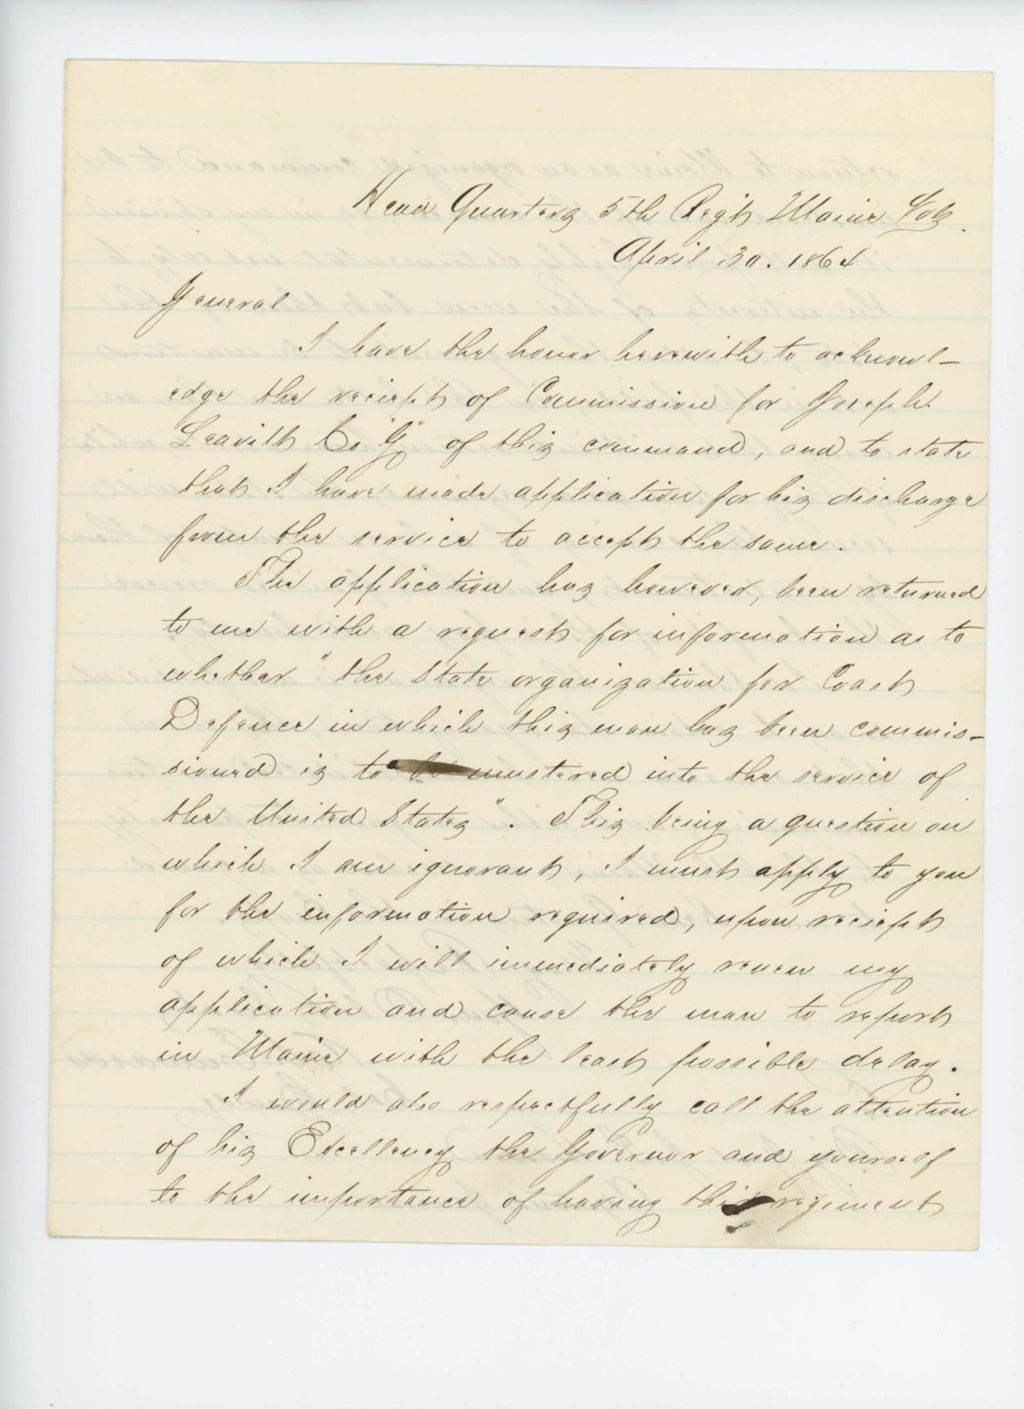 Head Quarters 5th Reg't Maine Vols.
April 30. 1864
General
I have the honor herewith to acknowl-
edge the reciept of Commission for Joseph
Leavitt Co "G" of this command, and to state
that I have made application for his discharge
from the service to accept the same.
The application has however, been returned
to me with a request for information as to
whether "the State organization for Coast
Defence in which this man has been commis-
sioned is to be mustered into the service of
the United States". This being a question on
which I am ignorant, I must apply to you
for the information required, upon reciept
of which I will immediately renew my
application and cause the man to report
in Maine with the least possible delay.
I would also respectfully call the attention
of his Excellency the Governor and yourself
to the importance of having this regiment